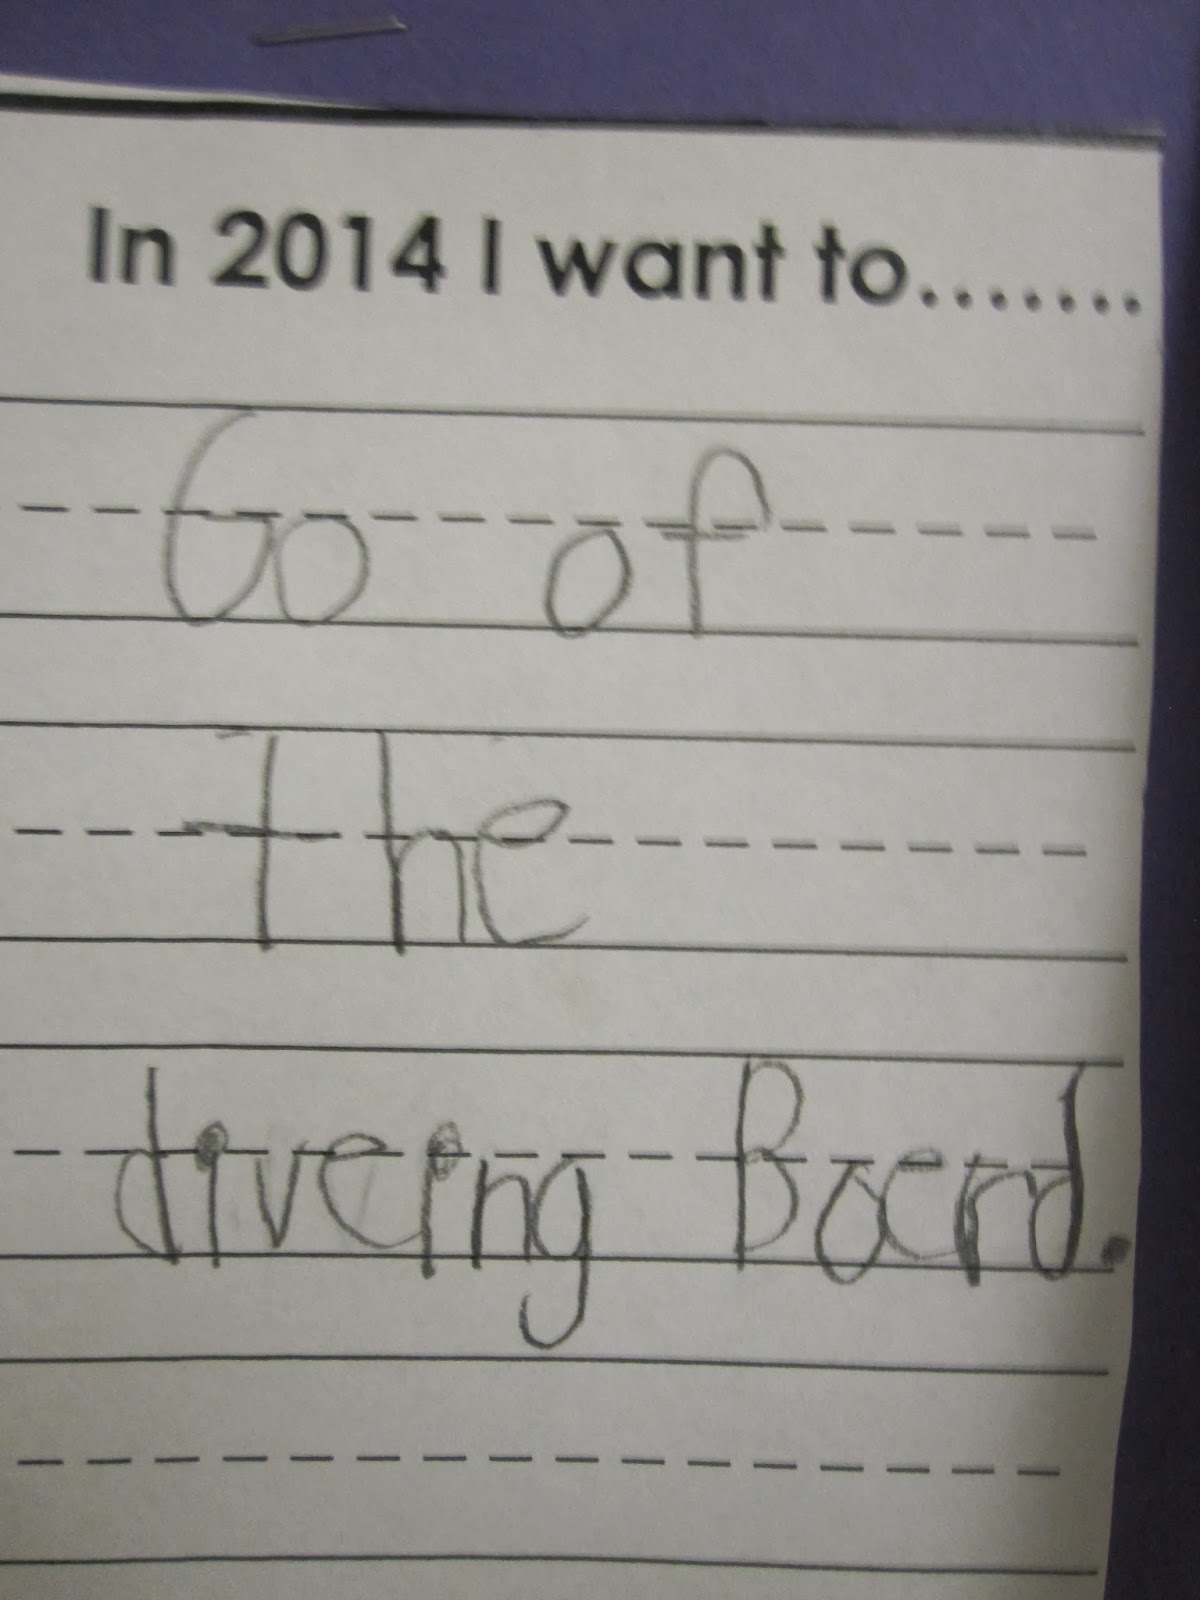 In 2014 I want to.......
Go of
the
diveing Boerd.